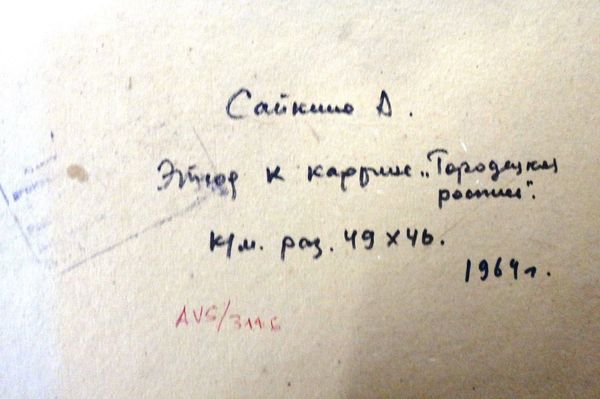 Сайкино Д.
Этюд к картине „Городецкая
роспись".
к/м. раз. 49 х 46.
1964 г.
AVS/3116